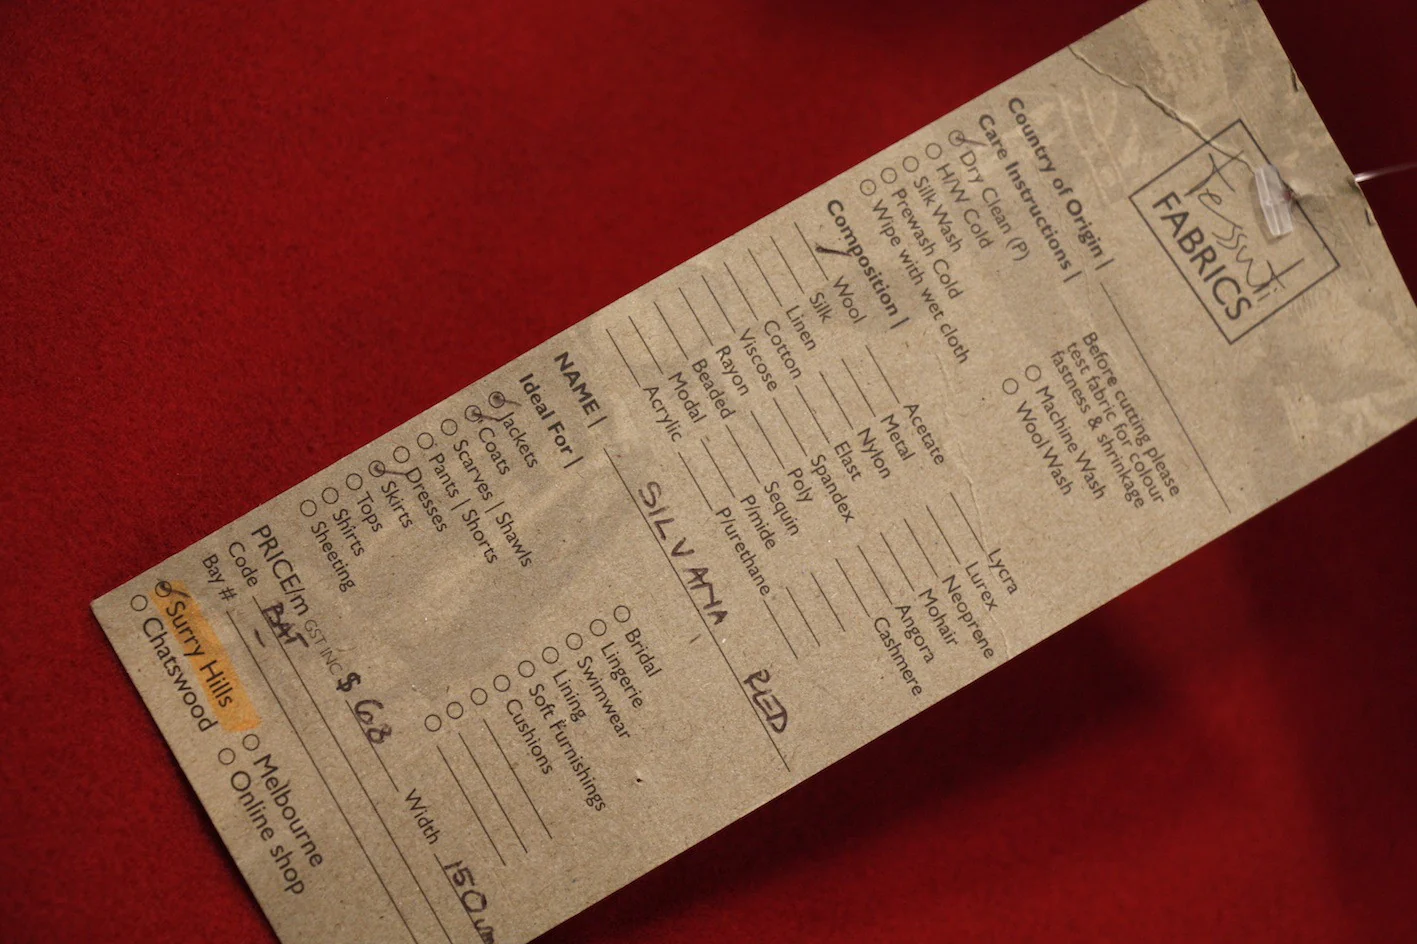 tessuti
FABRICS
Country of Origin |
Care Instructions |
Dry Clean (P)
H/W Cold
Silk Wash
Prewash Cold
Wipe with wet cloth
Before cutting please
test fabric for colour
fastness & shrinkage
Machine Wash
Wool Wash
Composition |
Wool
Silk
Linen
Cotton
Viscose
Rayon
Beaded
Modal
Acrylic
Acetate
Metal
Nylon
Elast
Spandex
Poly
Sequin
P/mide
P/urethane
Lycra
Lurex
Neoprene
Mohair
Angora
Cashmere
NAME | SILVANA RED
Ideal For |
Jackets
Coats
Scarves | Shawls
Pants | Shorts
Dresses
Skirts
Tops
Shirts
Sheeting
Bridal
Lingerie
Swimwear
Lining
Soft Furnishings
Cushions
PRICE/m GST INC $ 68 Width 150cm
Code BAT
Bay # -
Surry Hills
Chatswood
Melbourne
Online shop